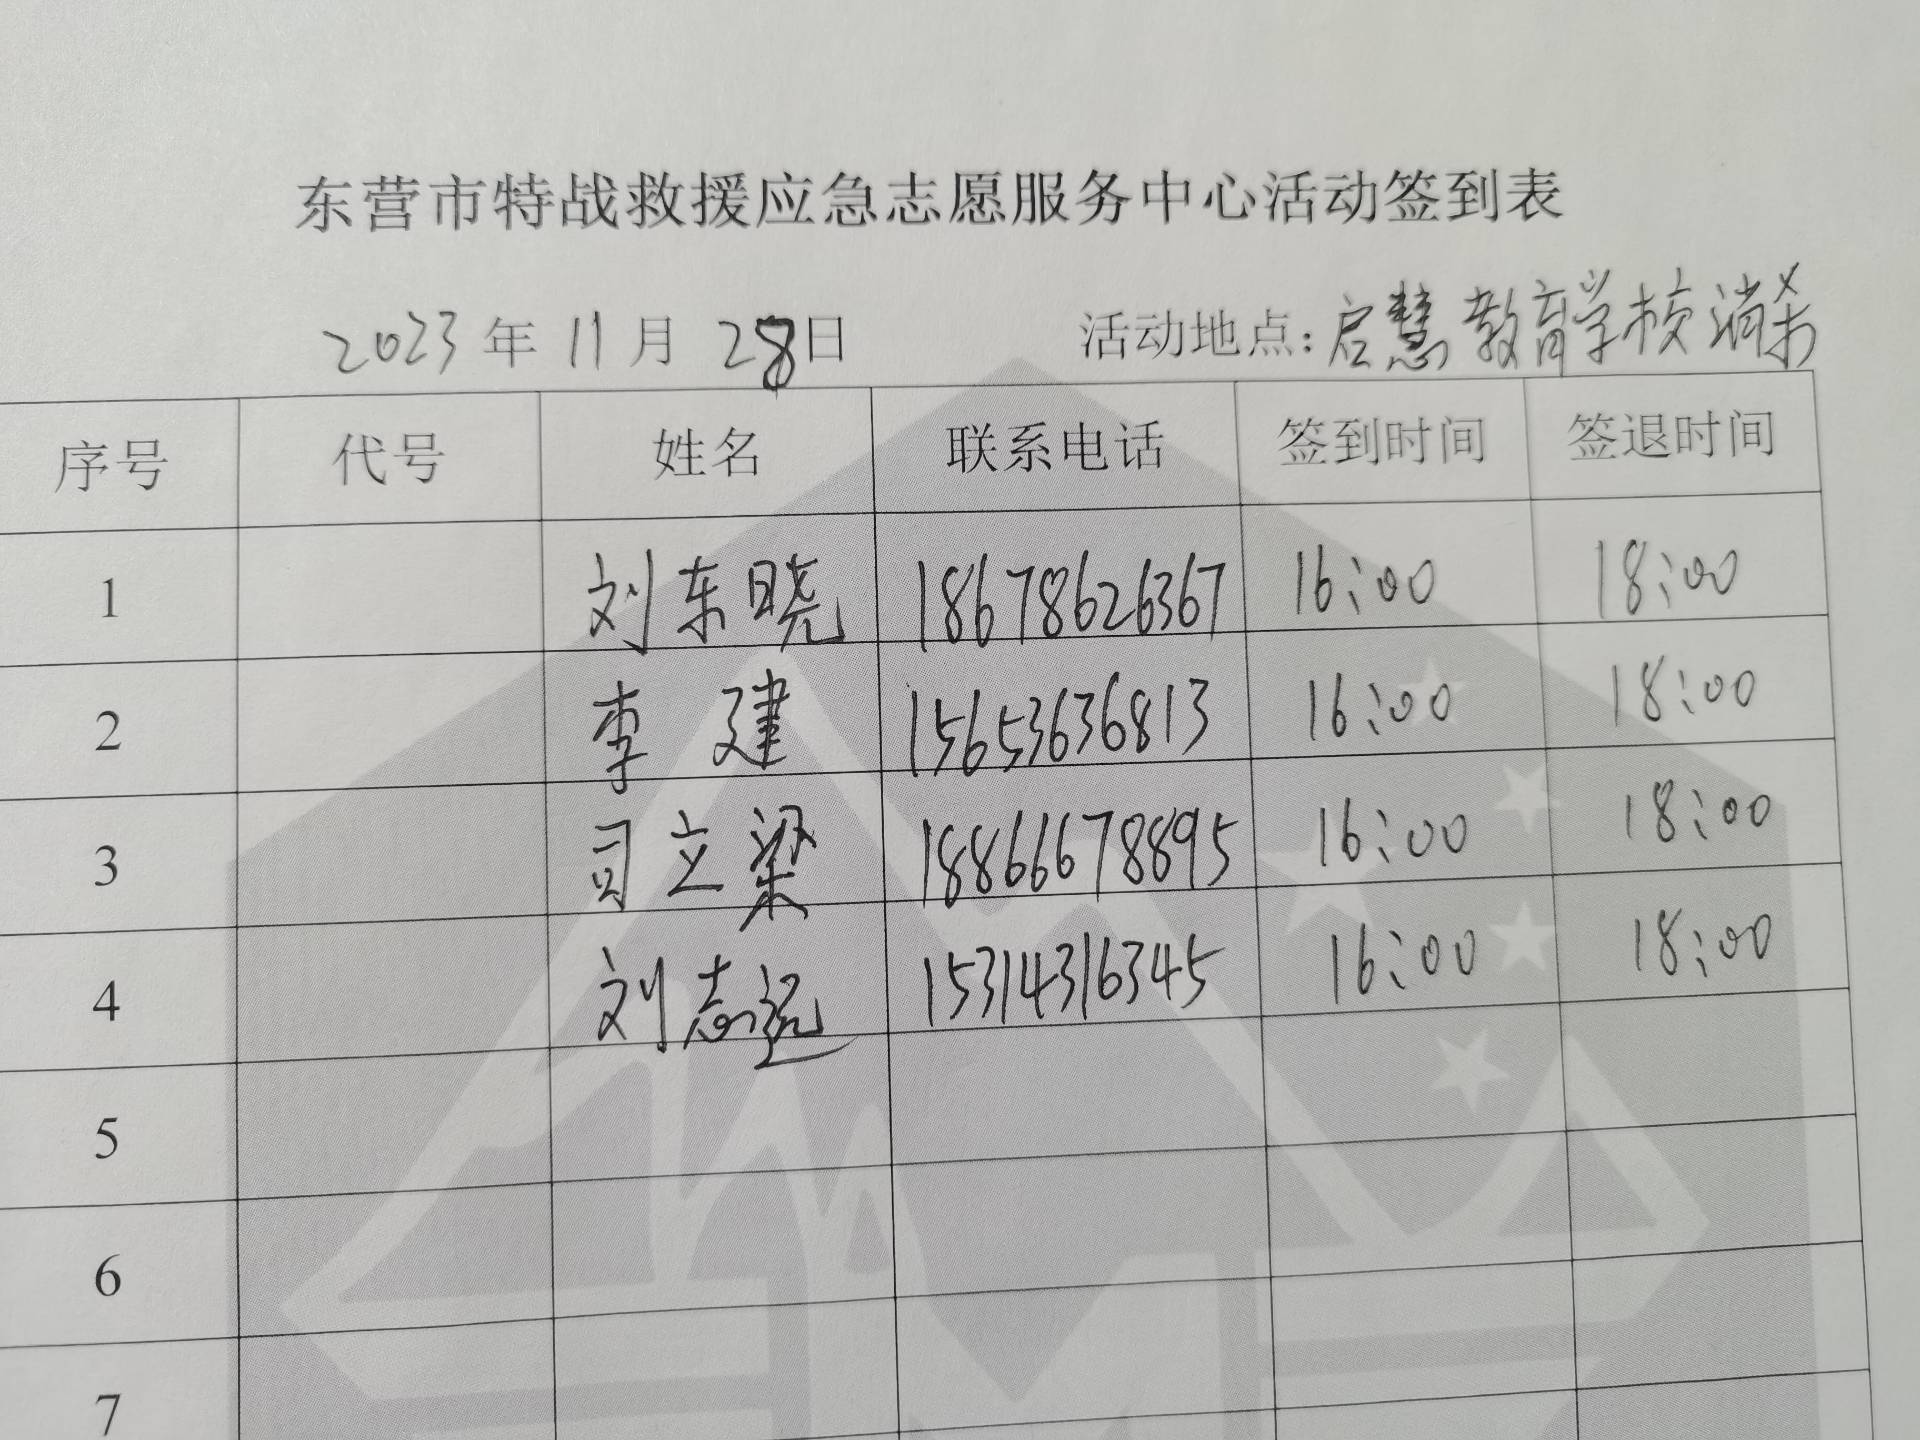 东营市特战救援应急志愿服务中心活动签到表
2023年11月28日 活动地点：启慧教育学校消杀
序号 代号 姓名 联系电话 签到时间 签退时间
1 刘东晓 18678626367 16:00 18:00
2 李建 15653636813 16:00 18:00
3 司立梁 18866678895 16:00 18:00
4 刘志远 15314316345 16:00 18:00
5
6
7